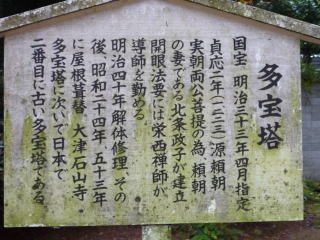 多宝塔
国宝 明治三十三年四月指定
貞応二年(一二二三)源頼朝
実朝両公菩提の為、頼朝
の妻である北条政子が建立
開眼法要には栄西禅師が
導師を勤める
明治四十年解体修理、その
後、昭和二十四年、五十三年
に屋根葺替 大津石山寺
多宝塔に次いで日本で
二番目に古い多宝塔である